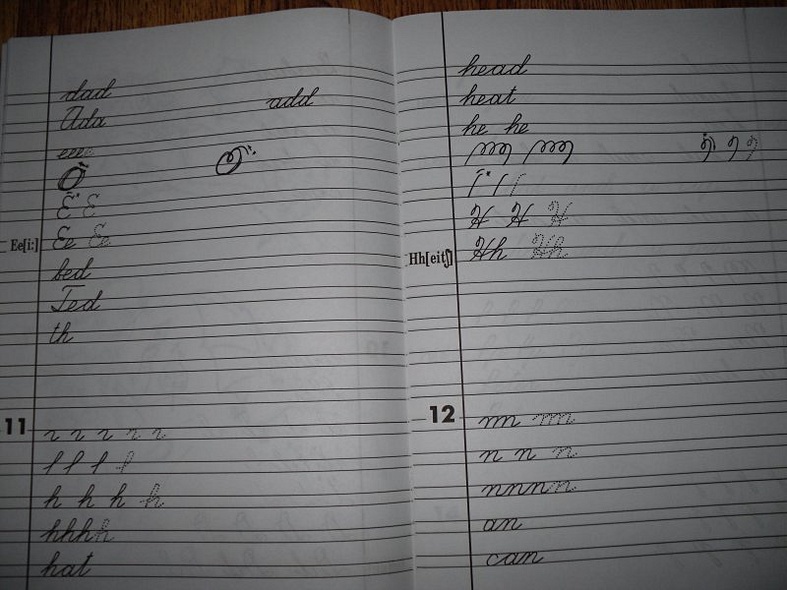 dad add
Ada
eeee
Ee[i:] Ee Ee
bed
Ted
th
11
h h h h
hhhh
hat
head
heat
he he
H H H
Hh[eitʃ] Hh Hh
12
n n n
nnnn
an
can